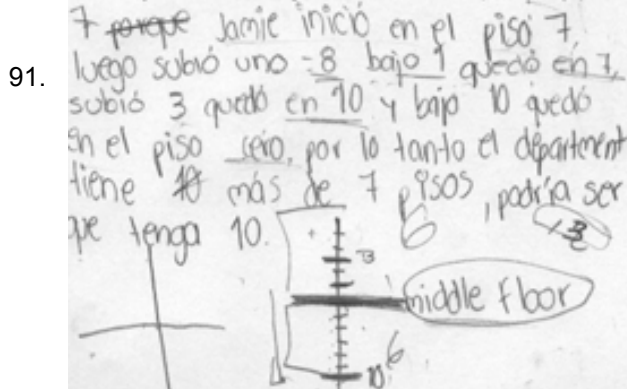 7 porque Jamie inició en el piso 7
91.
luego subió uno = 8 bajo 1 quedó en 7,
subió 3 quedó en 10 y bajo 10 quedó
en el piso cero, por lo tanto el department
tiene más de 7 pisos, podría ser
que tenga 10. 6 13
3
middle floor
10 6